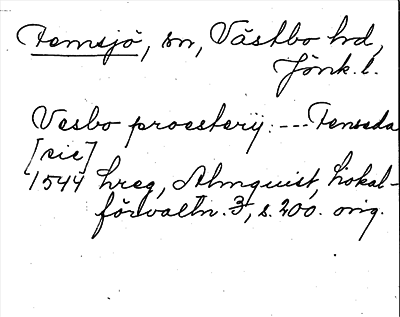 Femsjö, sn, Västbo hd,
Jönk. l.
Vesbo proesterij: --- Femseda
[sic]
1544 hreg, Almquist, Lokal-
förvaltn. 3, s. 200. orig.